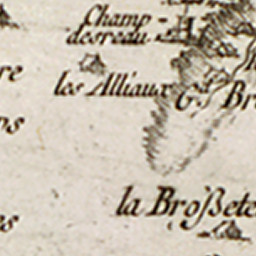 Champ-
desreau
les Alliaux
G.d Br
re
ps
la Broßete
es